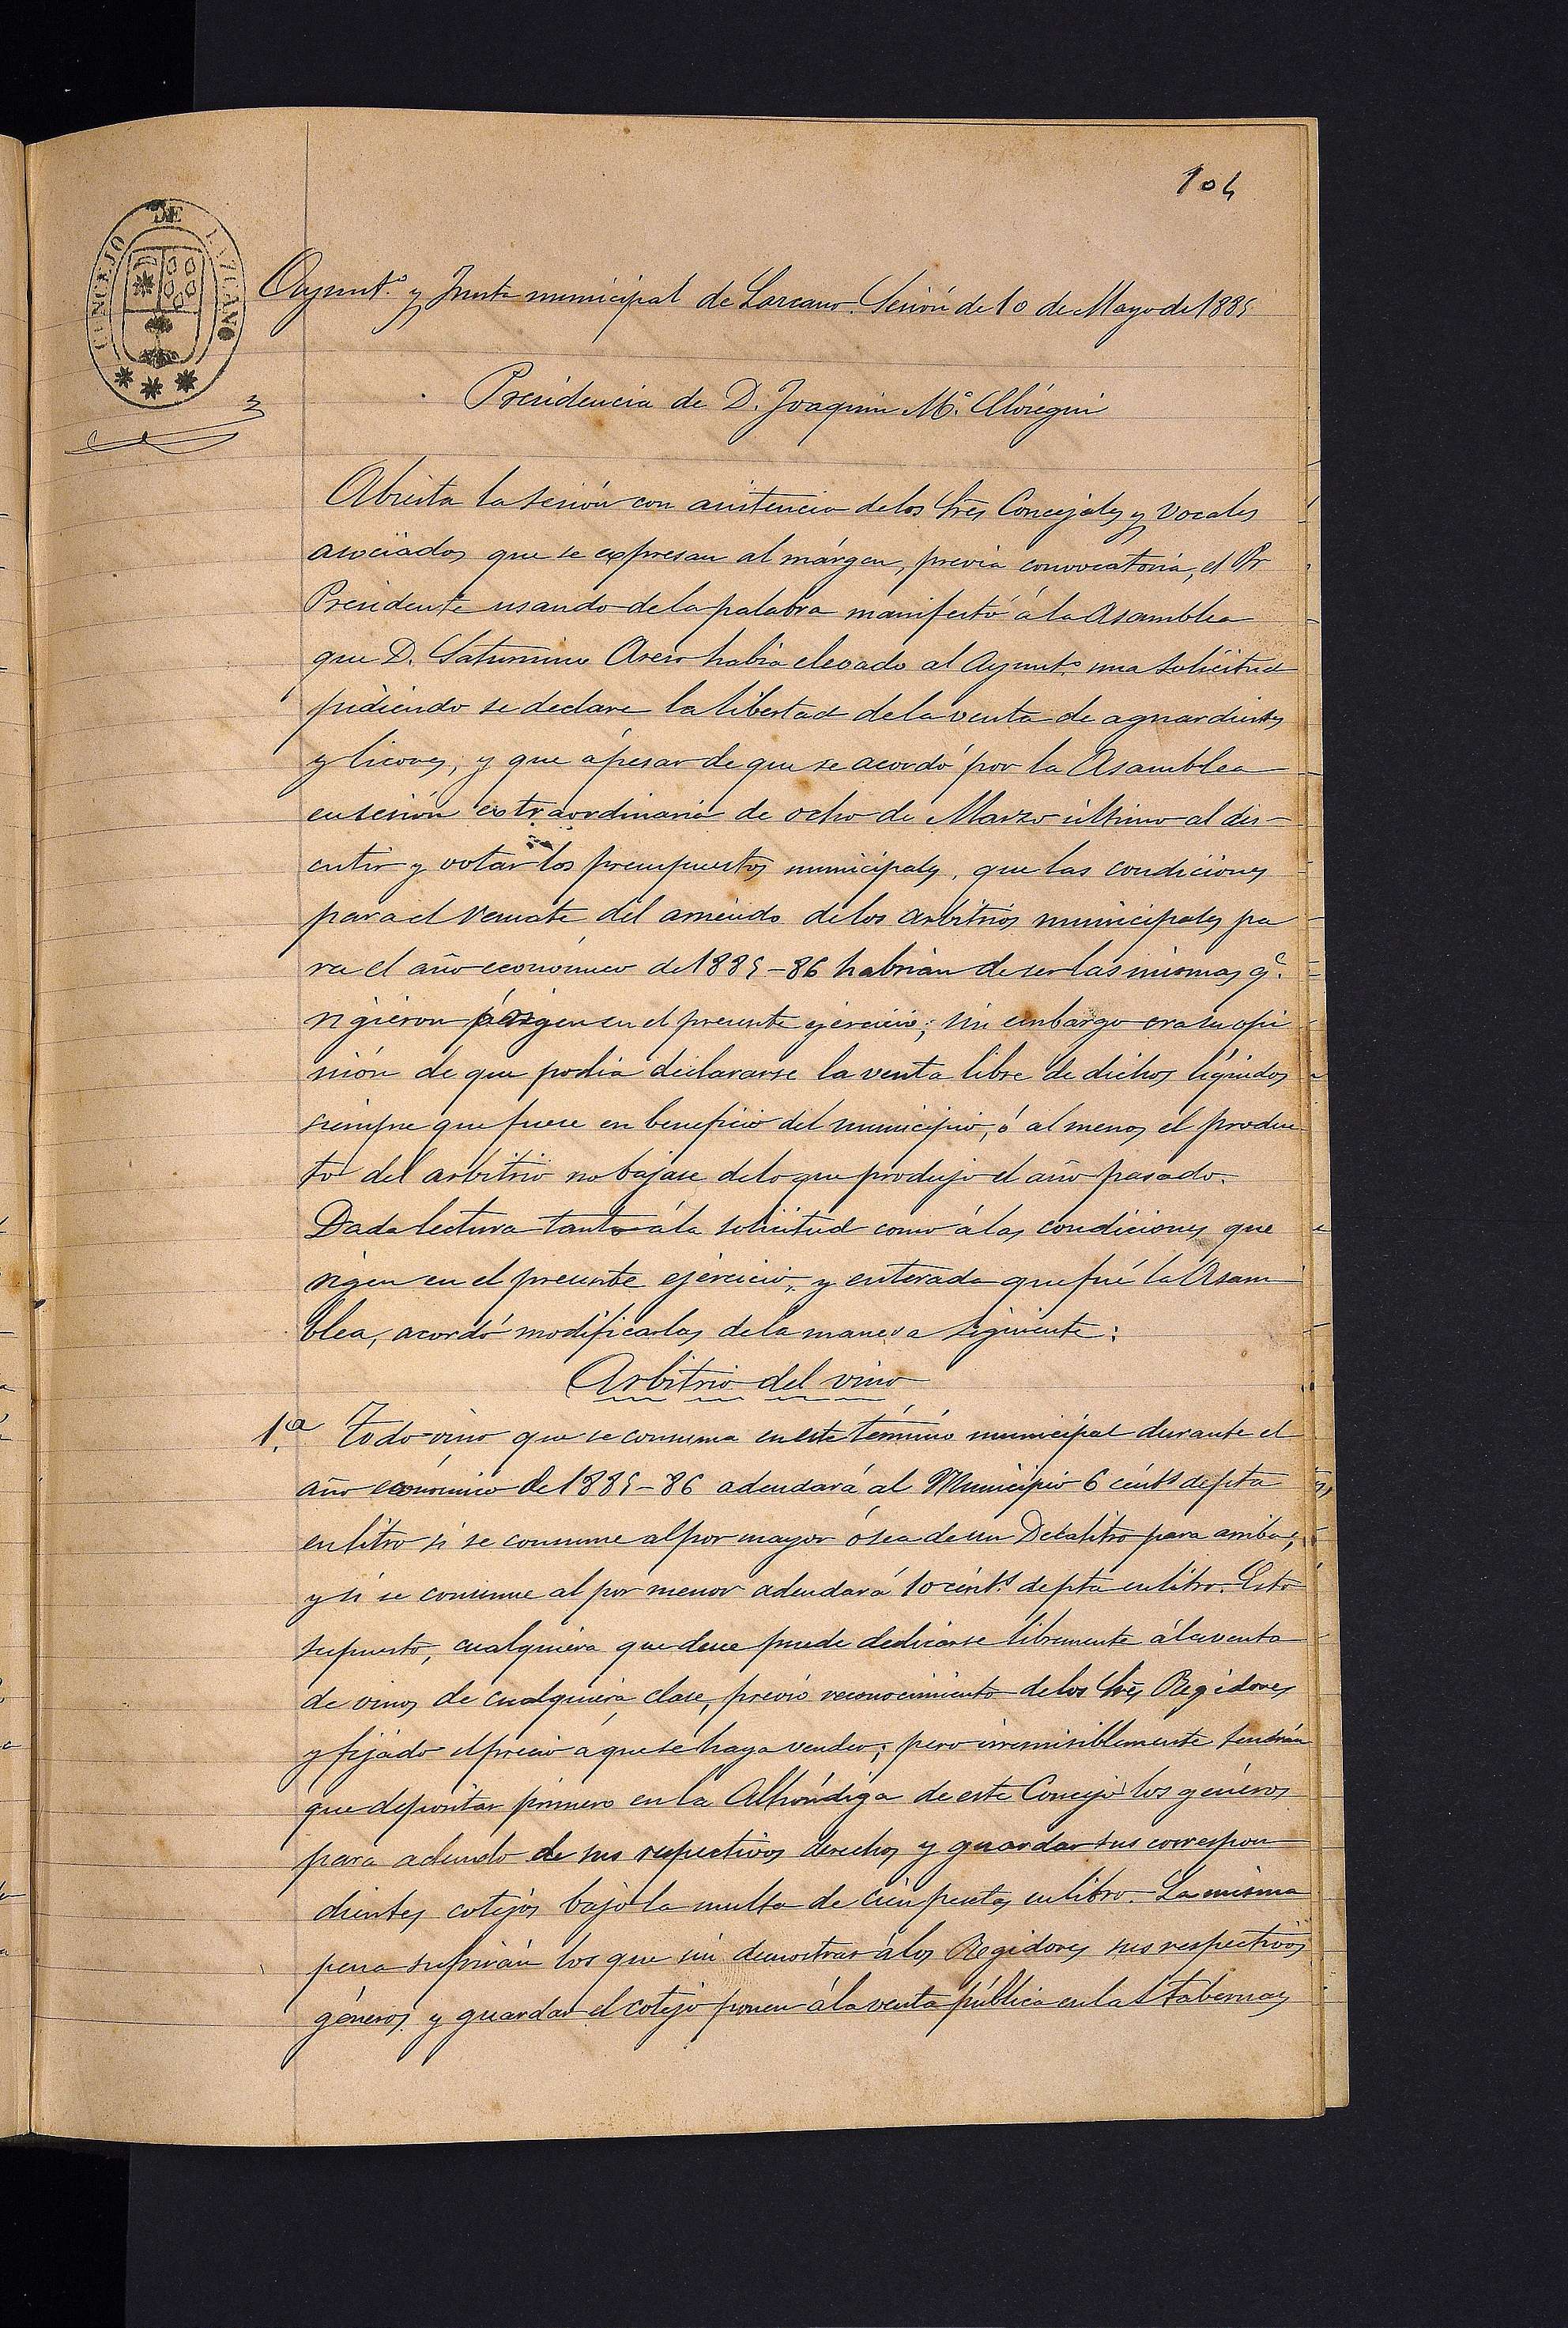 104
CONCEJO DE LAZCANO
Ayunt.º y Junta municipal de Lazcano. Sesión de 10 de Mayo de 1885
Presidencia de D. Joaquin M.ª Aloregui
Abierta la sesión con asistencia de los Sres Concejales y vocales
asociados que se expresan al márgen, previa convocatoria, el Sr
Presidente usando de la palabra manifestó á la Asamblea
que D. Saturnino Asero habia elevado al Ayunt.º una solicitud
pidiendo se declare la libertad de la venta de aguardientes
y licores; y que ápesar de que se acordó por la Asamblea
en sesión extraordinaria de ocho de Marzo último al dis-
cutir y votar los presupuestos municipales, que las condiciones
para el remate del arriendo de los arbitrios municipales pa
ra el año económico de 1885-86 habrian de ser las mismas q.e
rigieron rigen en el presente ejercicio; sin embargo era su opi
nión de que podia declararse la venta libre de dichos liquidos
siempre que fuese en beneficio del municipio, ó al menos el produc
to del arbitrio no bajase de lo que produjo el año pasado.
Dada lectura tanto á la solicitud como á las condiciones que
rigen en el presente ejercicio, y enterada que fué la Asam
blea, acordó modificarlas de la manera siguiente:
Arbitrio del vino
1.ª Todo vino que se consuma en este término municipal durante el
año económico de 1885-86 adeudará al Municipio 6 cénts de pta
en litro si se consume al por mayor ó sea de un Decalitro para arriba;
y si se consume al por menor adeudará 10 cénts de pta en litro. Esto
supuesto, cualquiera que desee puede dedicarse libremente á la venta
de vinos de cualquiera clase, previo reconocimiento de los Sres Regidores
y fijado el precio á que se haya vender; pero irremisiblemente tendrán
que depositar primero en la Alhóndiga de este Concejo los géneros
para adeudo de sus respectivos derechos y guardar sus correspon
dientes cotejos bajo la multa de cien pesetas en litro. La misma
pena sufrirán los que sin demostrar á los Regidores sus respectivos
géneros y guardar el cotejo ponen á la venta pública en las tabernas